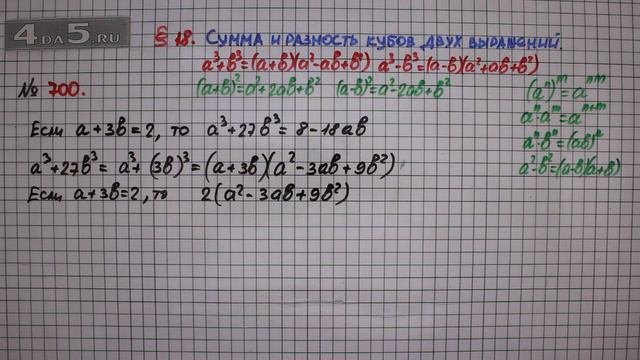 4DA5.RU
§ 18. Сумма и разность кубов двух выражений.
a³+b³=(a+b)(a²-ab+b²) a³-b³=(a-b)(a²+ab+b²)
№ 700. (a+b)²=a²+2ab+b² (a-b)²=a²-2ab+b² (aⁿ)ᵐ=aⁿᵐ
aⁿ·aᵐ=aⁿ⁺ᵐ
Если a+3b=2, то a³+27b³=8-18ab
aⁿ·bⁿ=(ab)ⁿ
a³+27b³= a³+(3b)³=(a+3b)(a²-3ab+9b²)
a²-b²=(a-b)(a+b)
Если a+3b=2, то 2(a²-3ab+9b²)